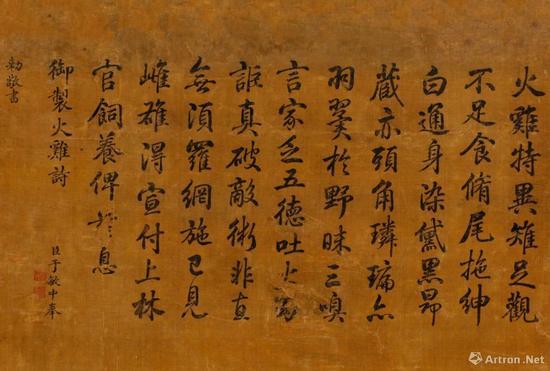 火雞特異雉足觀
不足食脩尾拖紳
白通身染黛黑昂
藏亦頭角璘㻞
羽翼於野昧三嗅
言家乏五德吐
詎真破敵術非直
無須羅網施已見
雌雄得宣付上林
官飼養俾息
御製火雞詩
臣于敏中奉
勅敬書
Artron.Net